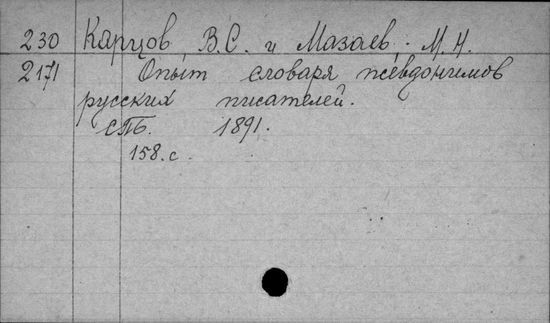 230 Карцов, В.С. и Мазаев. М.Н.
2171 Опыт словаря псевдонимов
русских писателей.
СПб. 1891.
158. с.